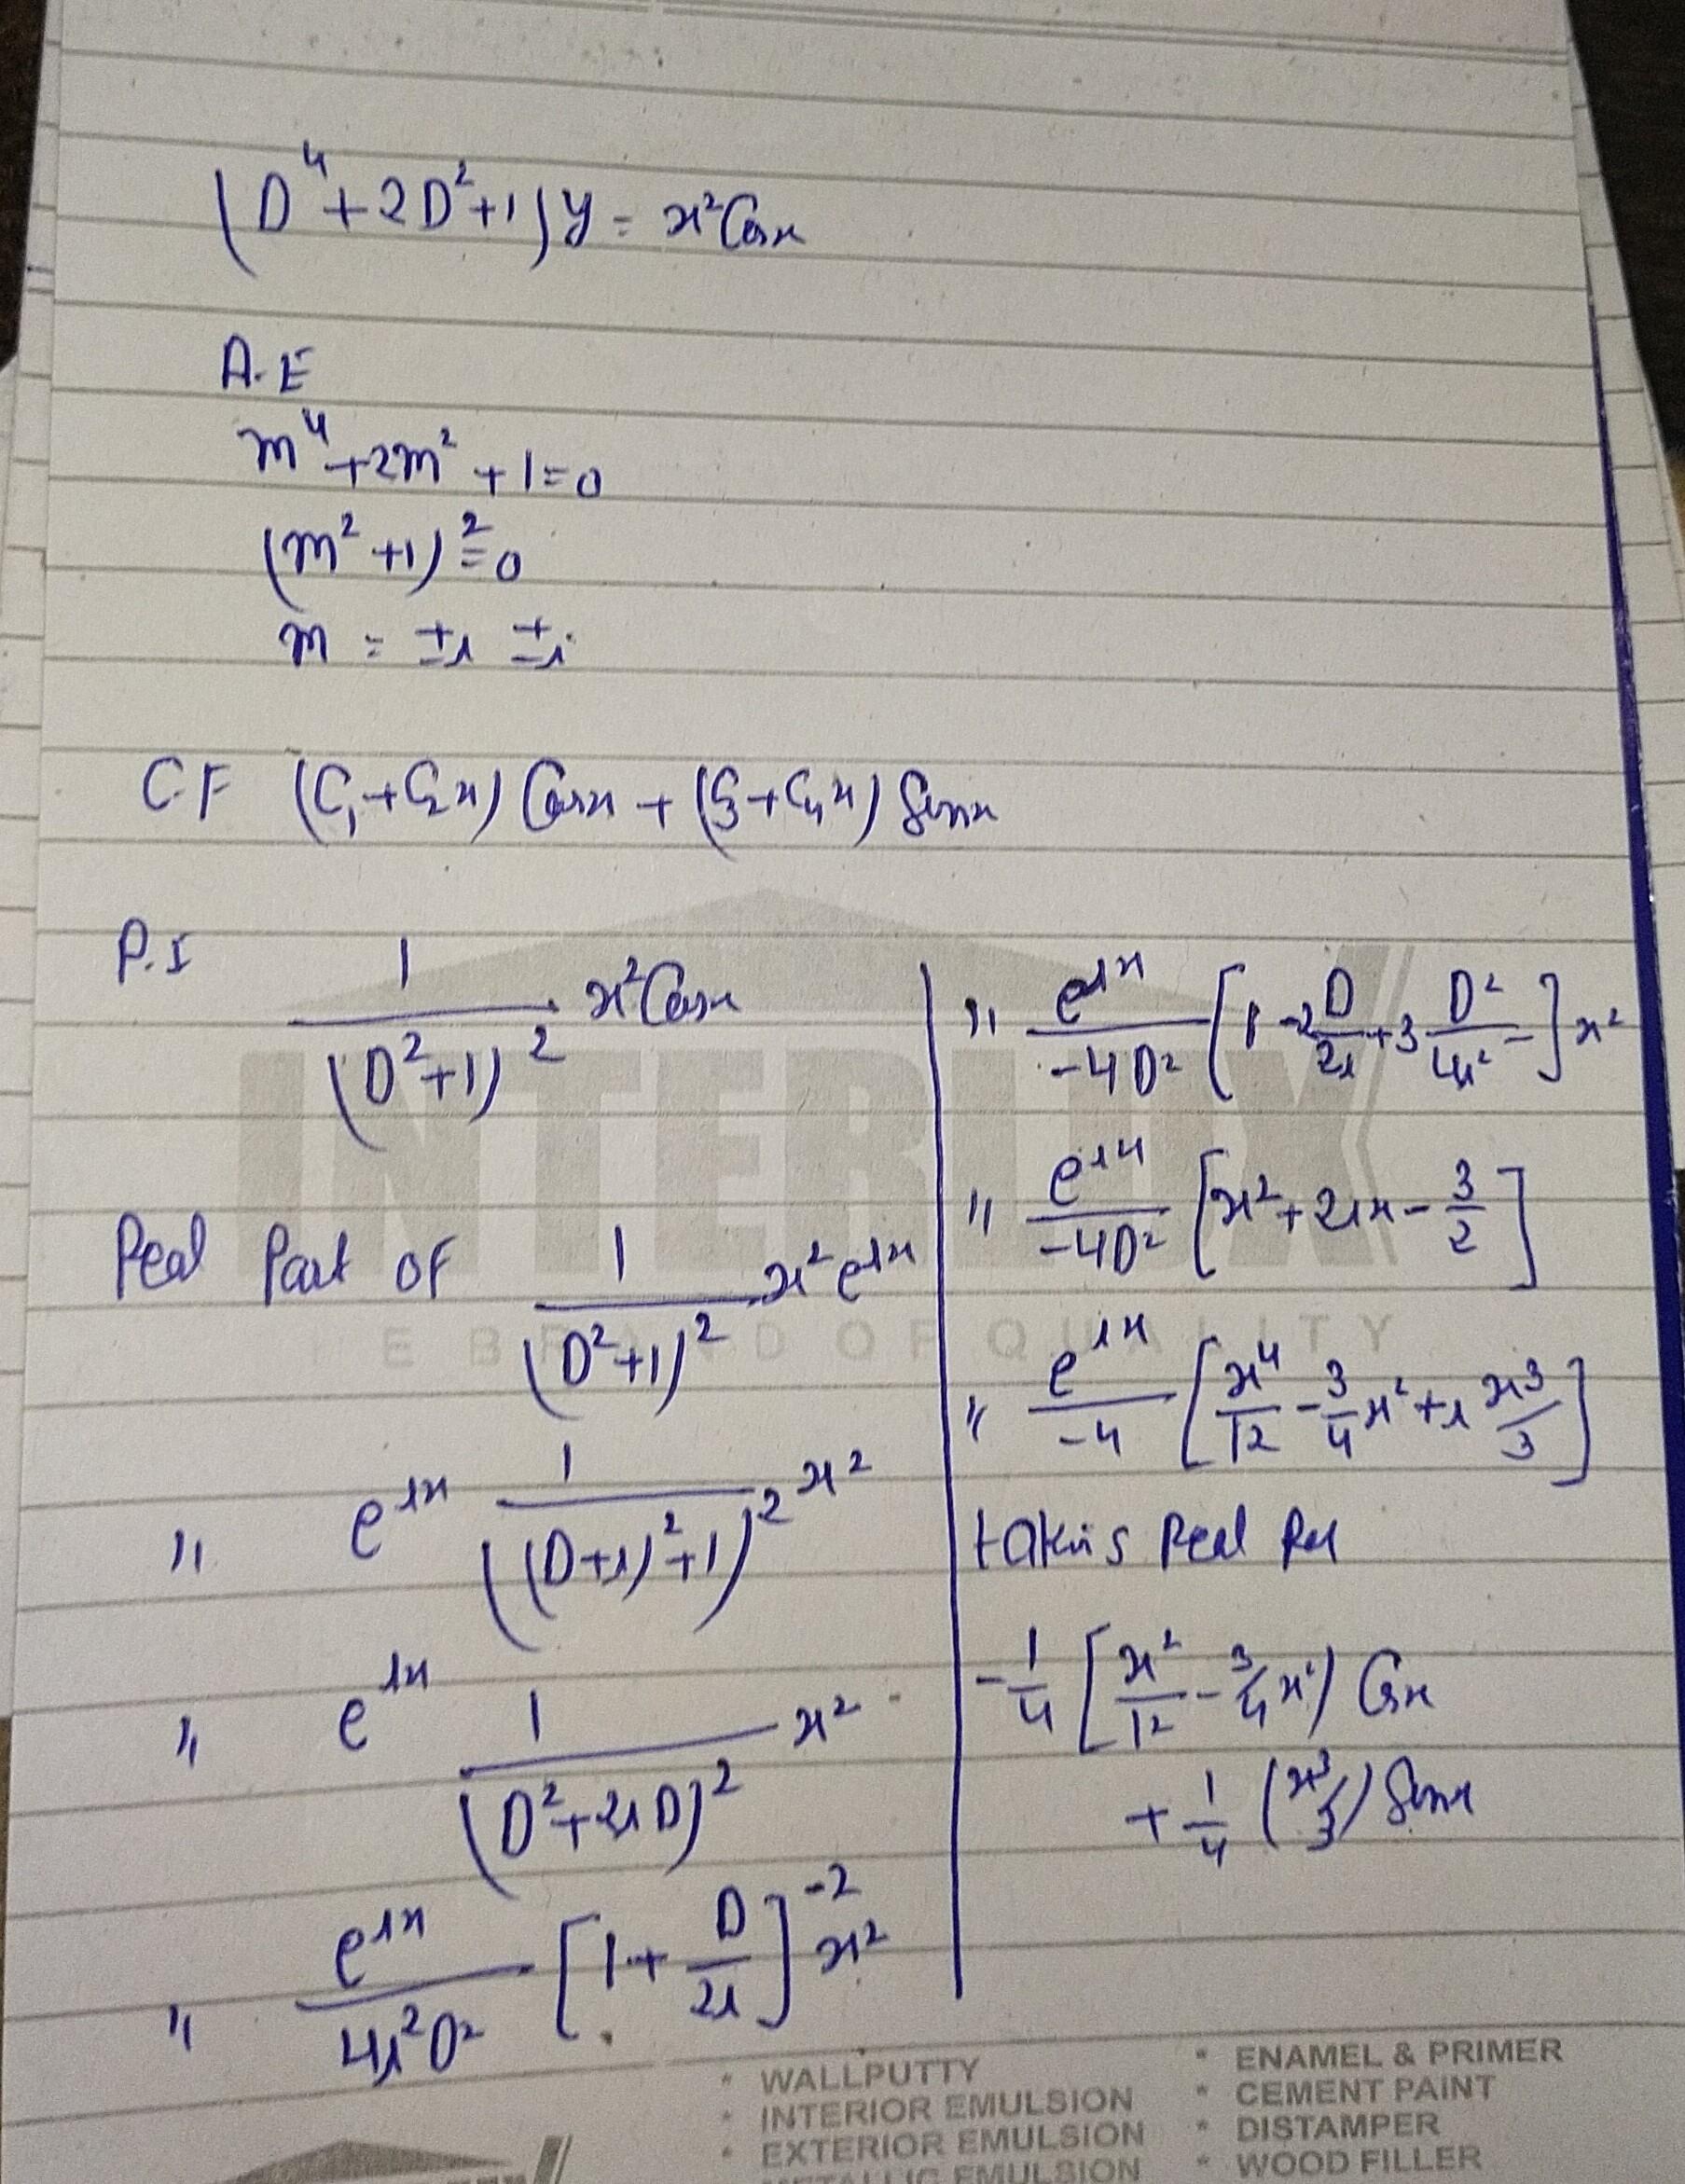 (D⁴+2D²+1)y = x²Cosx
A.E
m⁴+2m²+1=0
(m²+1)²=0
m = ±i ±i
C.F (C₁+C₂x) Cosx + (C₃+C₄x) Sinx
P.I 1/(D²+1)² x²Cosx
Real Part of 1/(D²+1)² x² e^ix
" e^ix 1/((D+i)²+1)² x²
" e^ix 1/(D²+2iD)² x²
" e^ix/4i²D² [1+ D/2i]⁻² x²
" e^ix/-4D² [1 -2 D/2i +3 D²/4i² -] x²
" e^ix/-4D² [x²+2ix- 3/2]
" e^ix/-4 [x⁴/12 - 3/4 x² + i x³/3]
Real
-1/4 [x²/12 - 3/4 x²) Cosx
+ 1/4 (x³/3) Sinx
INTERLUX
E BRAND OF QUALITY
* WALLPUTTY
* INTERIOR EMULSION
* EXTERIOR EMULSION
METALLIC EMULSION
* ENAMEL & PRIMER
* CEMENT PAINT
* DISTAMPER
* WOOD FILLER